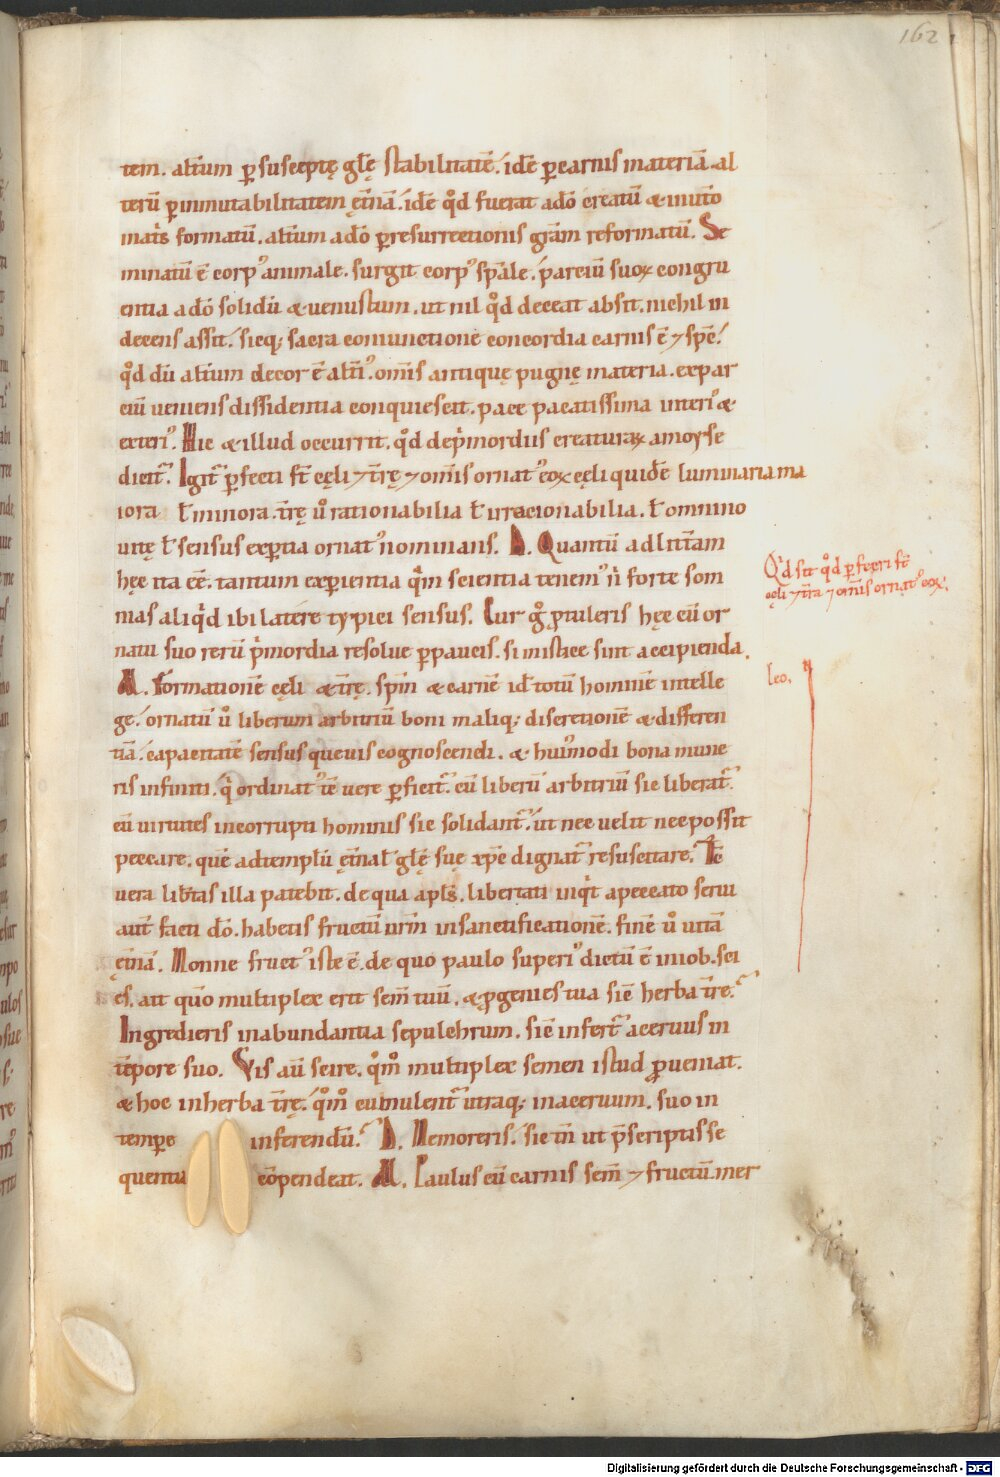 162
tem. alt̄ium p̱ susceptę gl̄ę stabilitatē. idē p̱ carnis materiā. al
terū p̱ inmutabilitatem ęt̄nā. idē qd̊ fuerat adō creatū & inuto
mat̓s formatū. alt̄ium adō p̱ resurrectionis grām reformatū. Se
minatū ē corpꝰ animale. surgit corpꝰ sp̄ale. parciū suoꝝ congru
entia adō solidū & uenustum. ut nil qd̊ deceat absit. nichil in
decens assit. sicq; sacra coniunctione concordia carnis ē ⁊ sp̄c.
qd̊ dū alt̄ium decor ē alt̄iꝰ. om̄is antiquę pugnę materia. ex par
ciū ueniens dissidentia conquiescit. pace pacatissima interiꝰ &
exteriꝰ. Hic & illud occurrit. qd̊ de p̓mordiis creaturaꝝ a moyse
dicit᷑. Igit᷑ p̱fecti s̄t cęli ⁊ t̄rę ⁊ om̄is ornatꝰ eoꝝ cęli quidē luminaria ma
iora ł minora. t̄rę ů rationabilia ł irracionabilia. ł omnino
uitę ł sensus exp̱tia ornatꝰ nominans. D. Quantū ad litt̄am
hęc ita eē. tantum exp̱ientia qm̓ scientia tenemꝰ n̓ forte som
mas aliqd̓ ibi latere typici sensus. Cur g̊ p̱tuleris hęc cū or
natu suo rerū p̓mordia resolue p̱ paucis. si mistice sint accipienda.
M. Formationē cęli & t̄rę. sp̄m & carnē id̄ totū hominē intelle
ge. ornatū ů liberum arbitriū boni maliq; discretionē & differen
tiā. capacitatē sensus quęuis cognoscendi. & huiꝰmodi bona mune
ris infiniti. q̓ ordinatꝰ tc̄ uere p̱ficit᷑. cū liberū arbitriū sic liberat᷑.
cū uirtutes incorrupti hominis sic solidant᷑. ut nec uelit nec possit
peccare. quē ad templū ęt̄nal̓ gl̄ę suę xp̄c dignat᷑ resuscitare. Tc̄
uera lib̄tas illa patebit. de qua apl̄s. liberati inqt̓ a peccato serui
aut̄ facti dō. habetis fructū ur̄m in sanctificationē. finē ů uitā
ęt̄nā. Nonne fructꝰ iste ē. de quo paulo superiꝰ dictū ē in iob. sci
es. ait qūo multiplex erit sem̄ tuū. & ꝓgenies tua sic̄ herba t̄rę.
Ingredieris in abundantia sepulchrum. sic̄ infert᷑ aceruus in
tēpore suo. Vis aū scire. qm̊ multiplex semen istud ꝓueniat.
& hoc in herba t̄rę. qm̊ cumulent᷑ utraq; in aceruum. suo in
temp̱e inferendū. D. Memoreris. sic tn̄ ut p̄scriptis se
quentia cōpendeat. M. Paulus cū carnis sem̄ ⁊ fructū. mer
Qd̓ sit qd̊ p̱fecti s̄t
cęli ⁊ t̄ra ⁊ om̄is ornatꝰ eoꝝ.
leo.
Digitalisierung gefördert durch die Deutsche Forschungsgemeinschaft - DFG